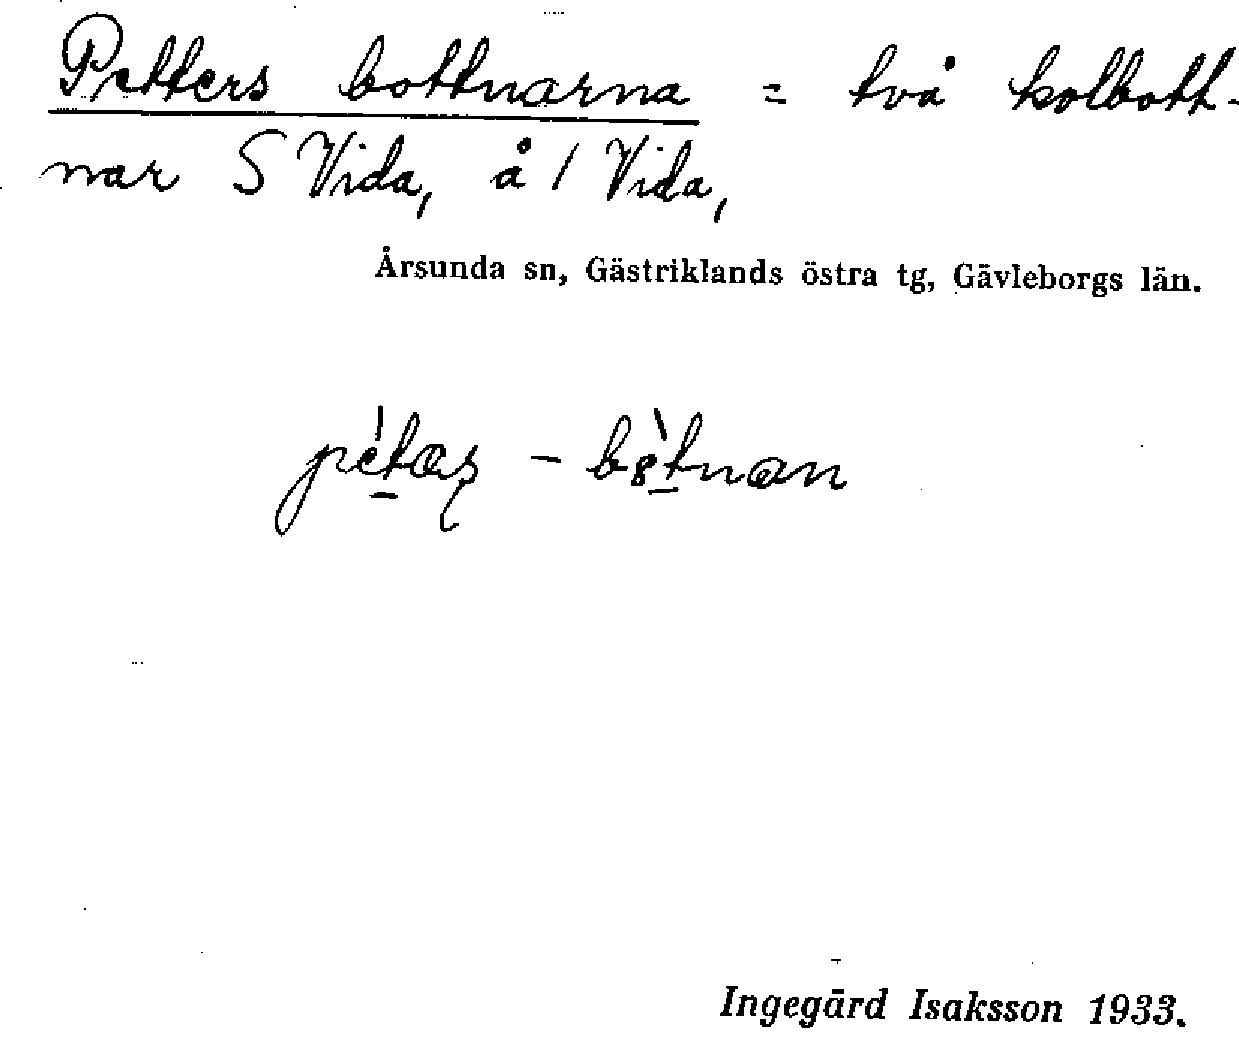 Petters bottnarna = två kolbott-
nar S Vida, å 1 Vida,
Årsunda sn, Gästriklands östra tg, Gävleborgs län.
Ingegärd Isaksson 1933.